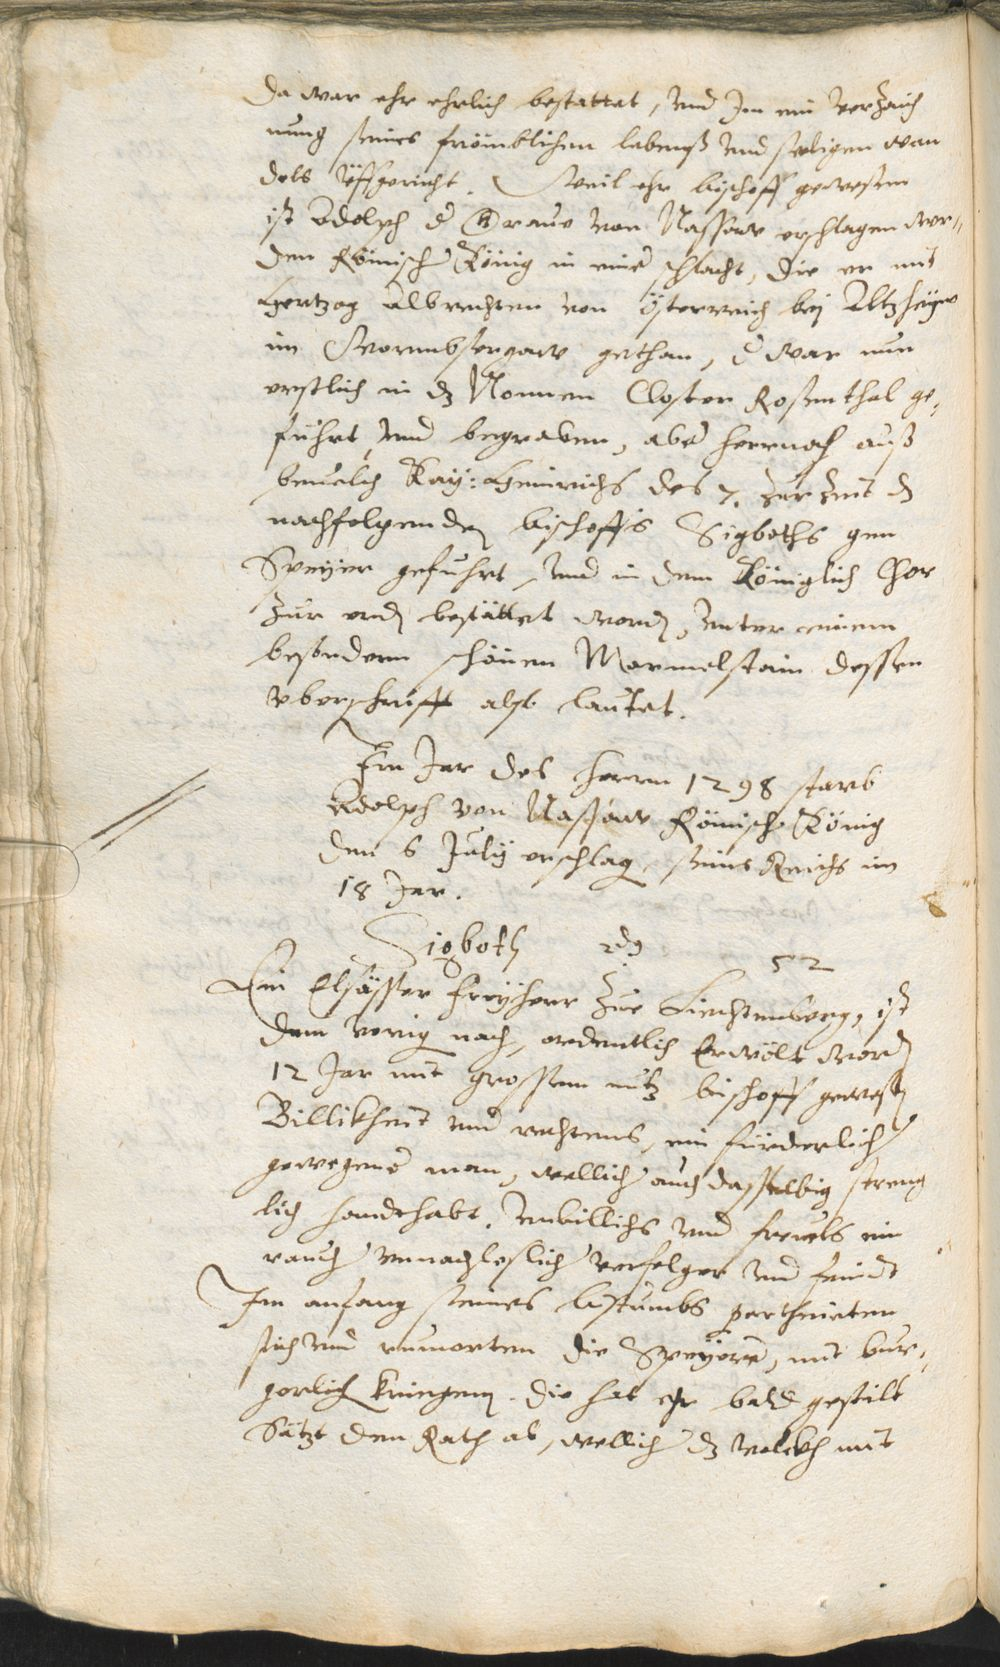 da war ehr ehrlich bestattet, Vnd Im ein verzaich
nung seines frömblichen lebens Vnd seeligen wan
dels vffgericht. Weil ehr bischoff gewesen
ist Adolph d Graue von Nassaw erschlagen wor,,
den Römisch König in einer schlacht, die er mit
Hertzog Albrechten von Österreich bey Altzheym
im Wormbsergaw gethan, d war nun
erstlich in dz Nonnen Closter Rosenthal ge,
führt, Vnd begraben, aber hernach auß
beuelch Kay: Heinrichs des 7. zur zeit d
nachfolgenden bischoffs Sigboths gen
Speyer geführt, Vnd in dem Königlich Chor
zur erd bestättet word, Vnter einem
besondern schönen Marmelstain dessen
Vberschrifft also lautet.
Im Jar des herrn 1298 starb
Adolph von Nassaw Römisch König
den 6 July erschlag, seines Reichs im
18 Jar.
Sigboth 2d9 52
Ein Elsässer freyherr zue Liechtenberg, ist
dem vorig nach, ordentlich Erwölt word
12 Jar mit grossem nutz bischoff gewesen
Billikheit vnd rechtens, ein fürderlich
gewegener man, wellich auch dasselbig streng
lich handthabt. Vnbillichs Vnd freuels ein
rauch vnnachleslich verfolger Vnd feindt
Im anfang seines bistumbs partheieten
sich Vnd rumorten die Speyerer, mit bur,
gerlich kriegen. die hat ehr bald gestilt
Satzt den Rath ab, wellich dz Volckh mit